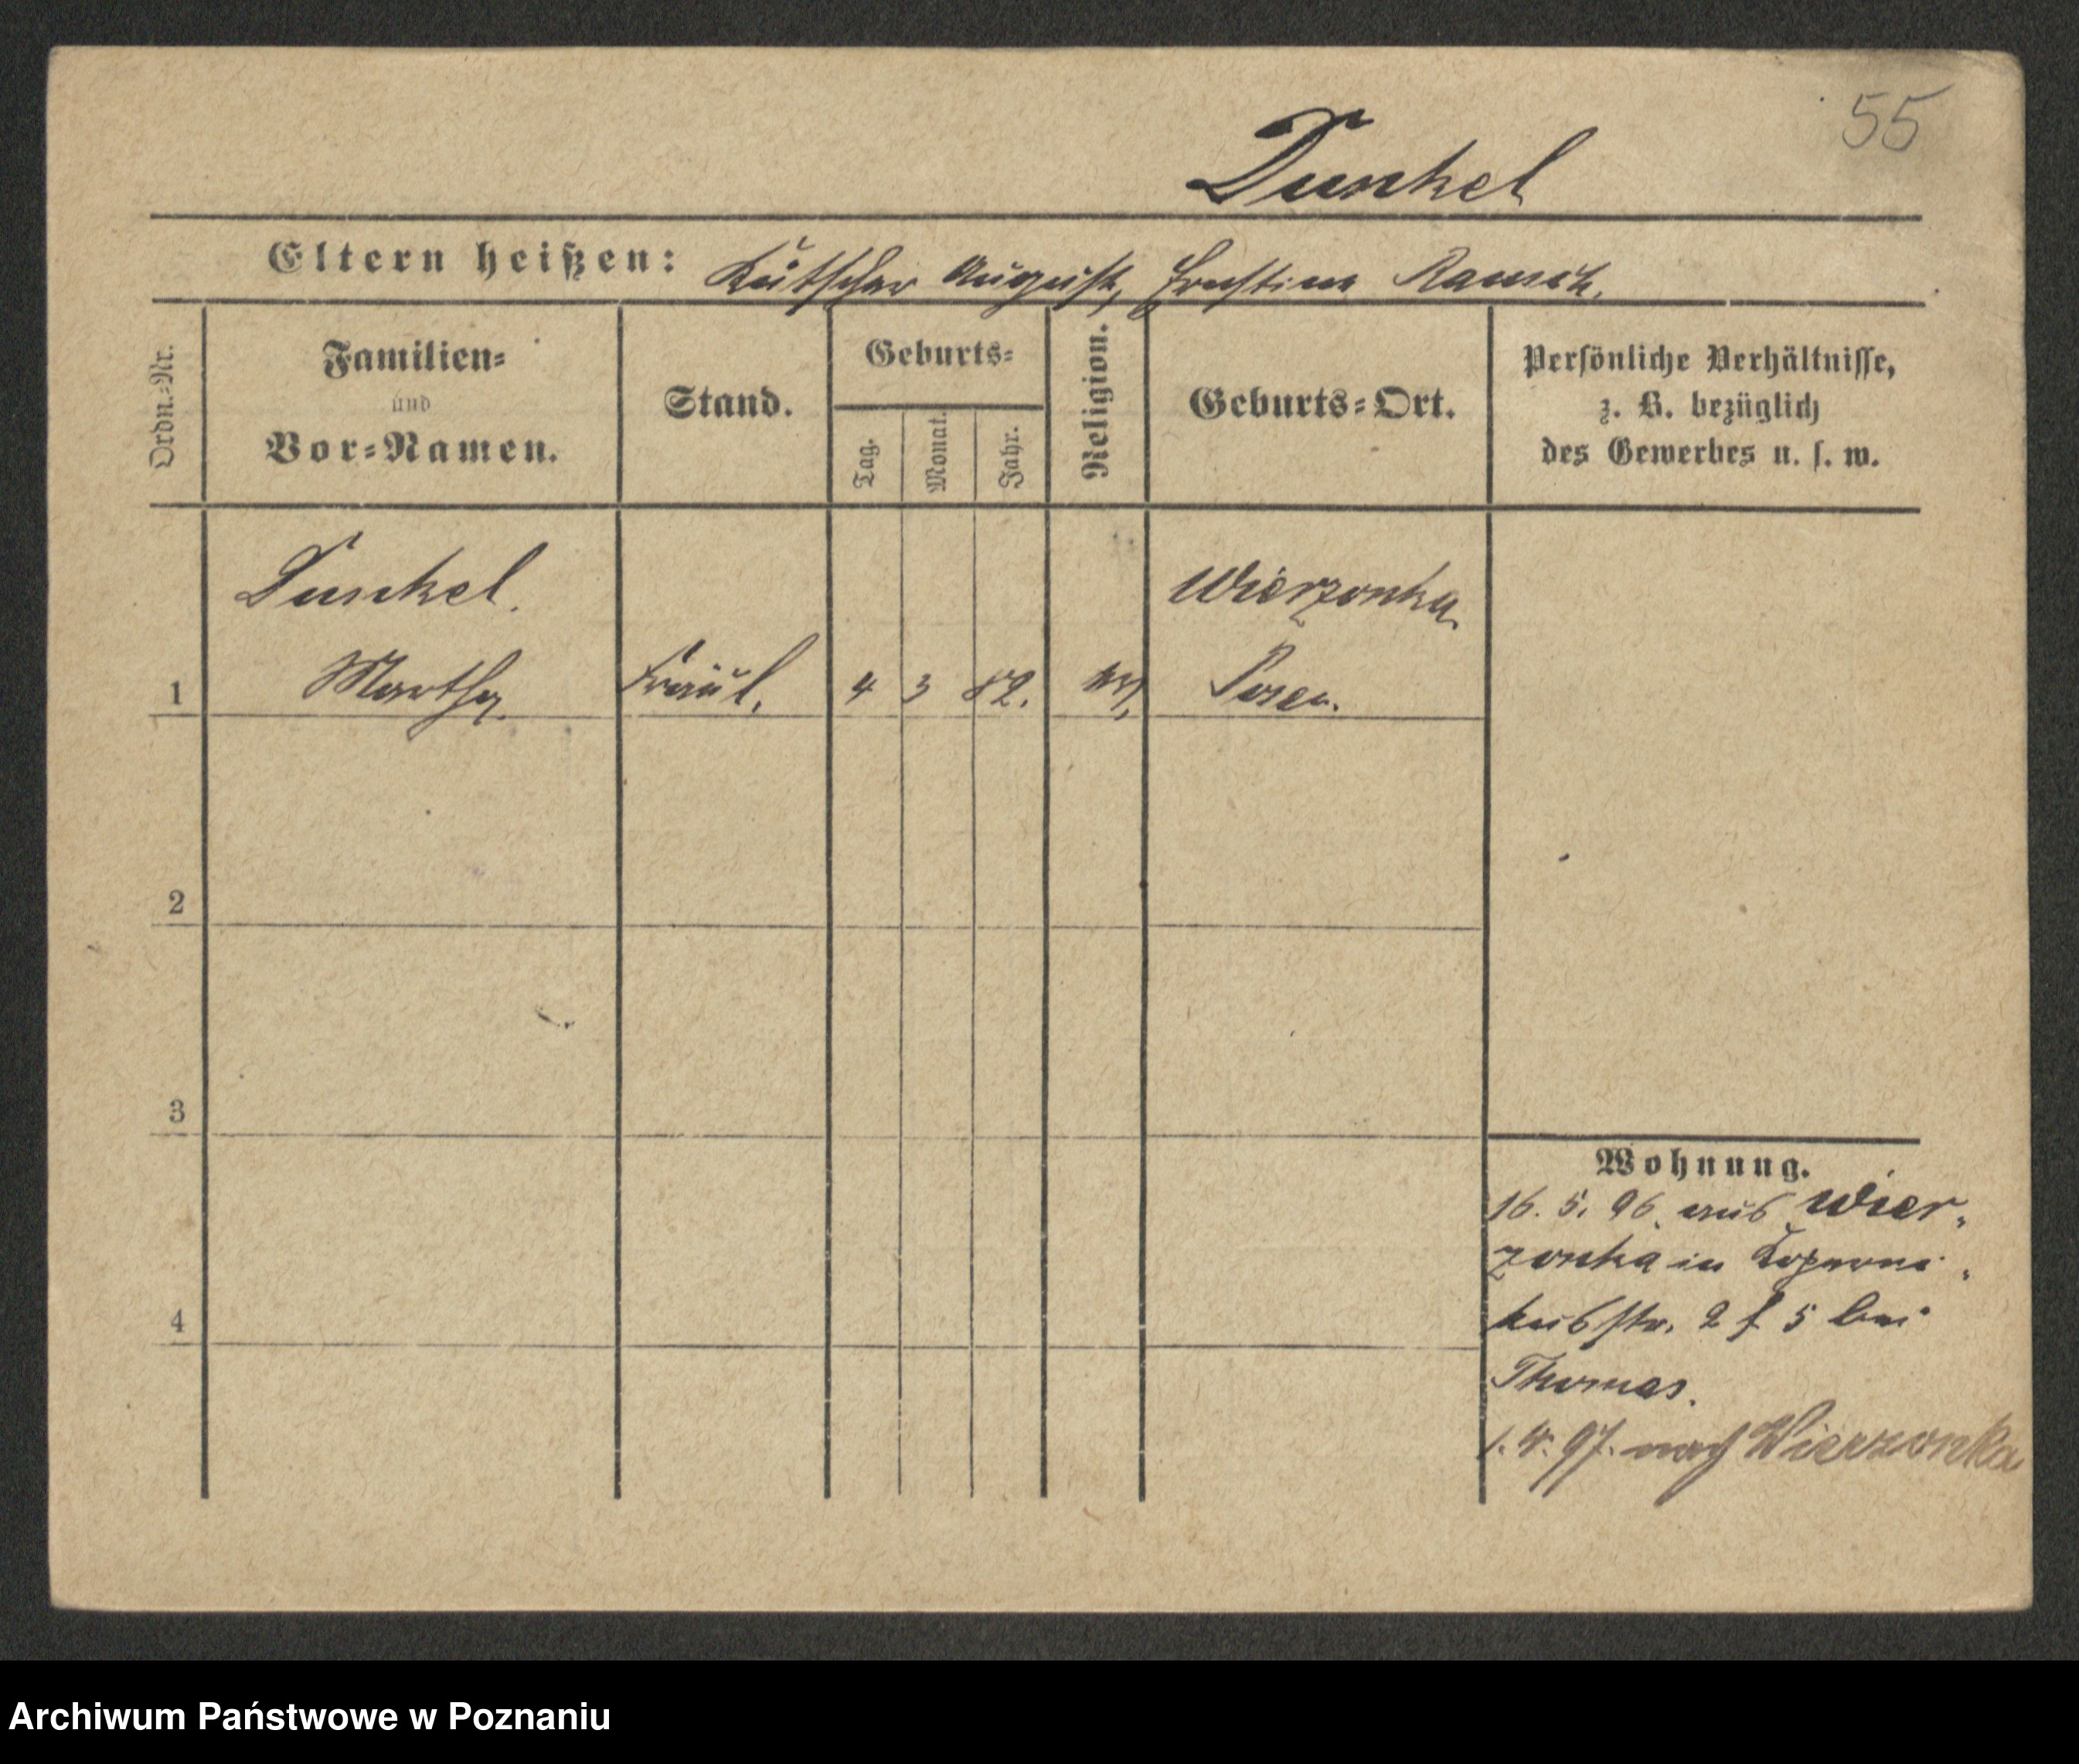 55
Dunkel
Eltern heißen: Kutscher August, Ernstine
Ordn.=Nr.
Familien=
und
Vor=Namen.
Stand.
Geburts=
Tag.
Monat.
Jahr.
Religion.
Geburts=Ort.
Persönliche Verhältnisse,
z. B. bezüglich
des Gewerbes u. s. w.
Dunkel.
Wierzonka
1 Martha Fräul. 4 3 82. Posen.
2
3
4
Wohnung.
16. 5. 96. aus Wier-
zonka in Koperni-
kusstr. 2 f 5 bei
Thomas.
1. 4. 97. nach Wierzonka
Archiwum Państwowe w Poznaniu